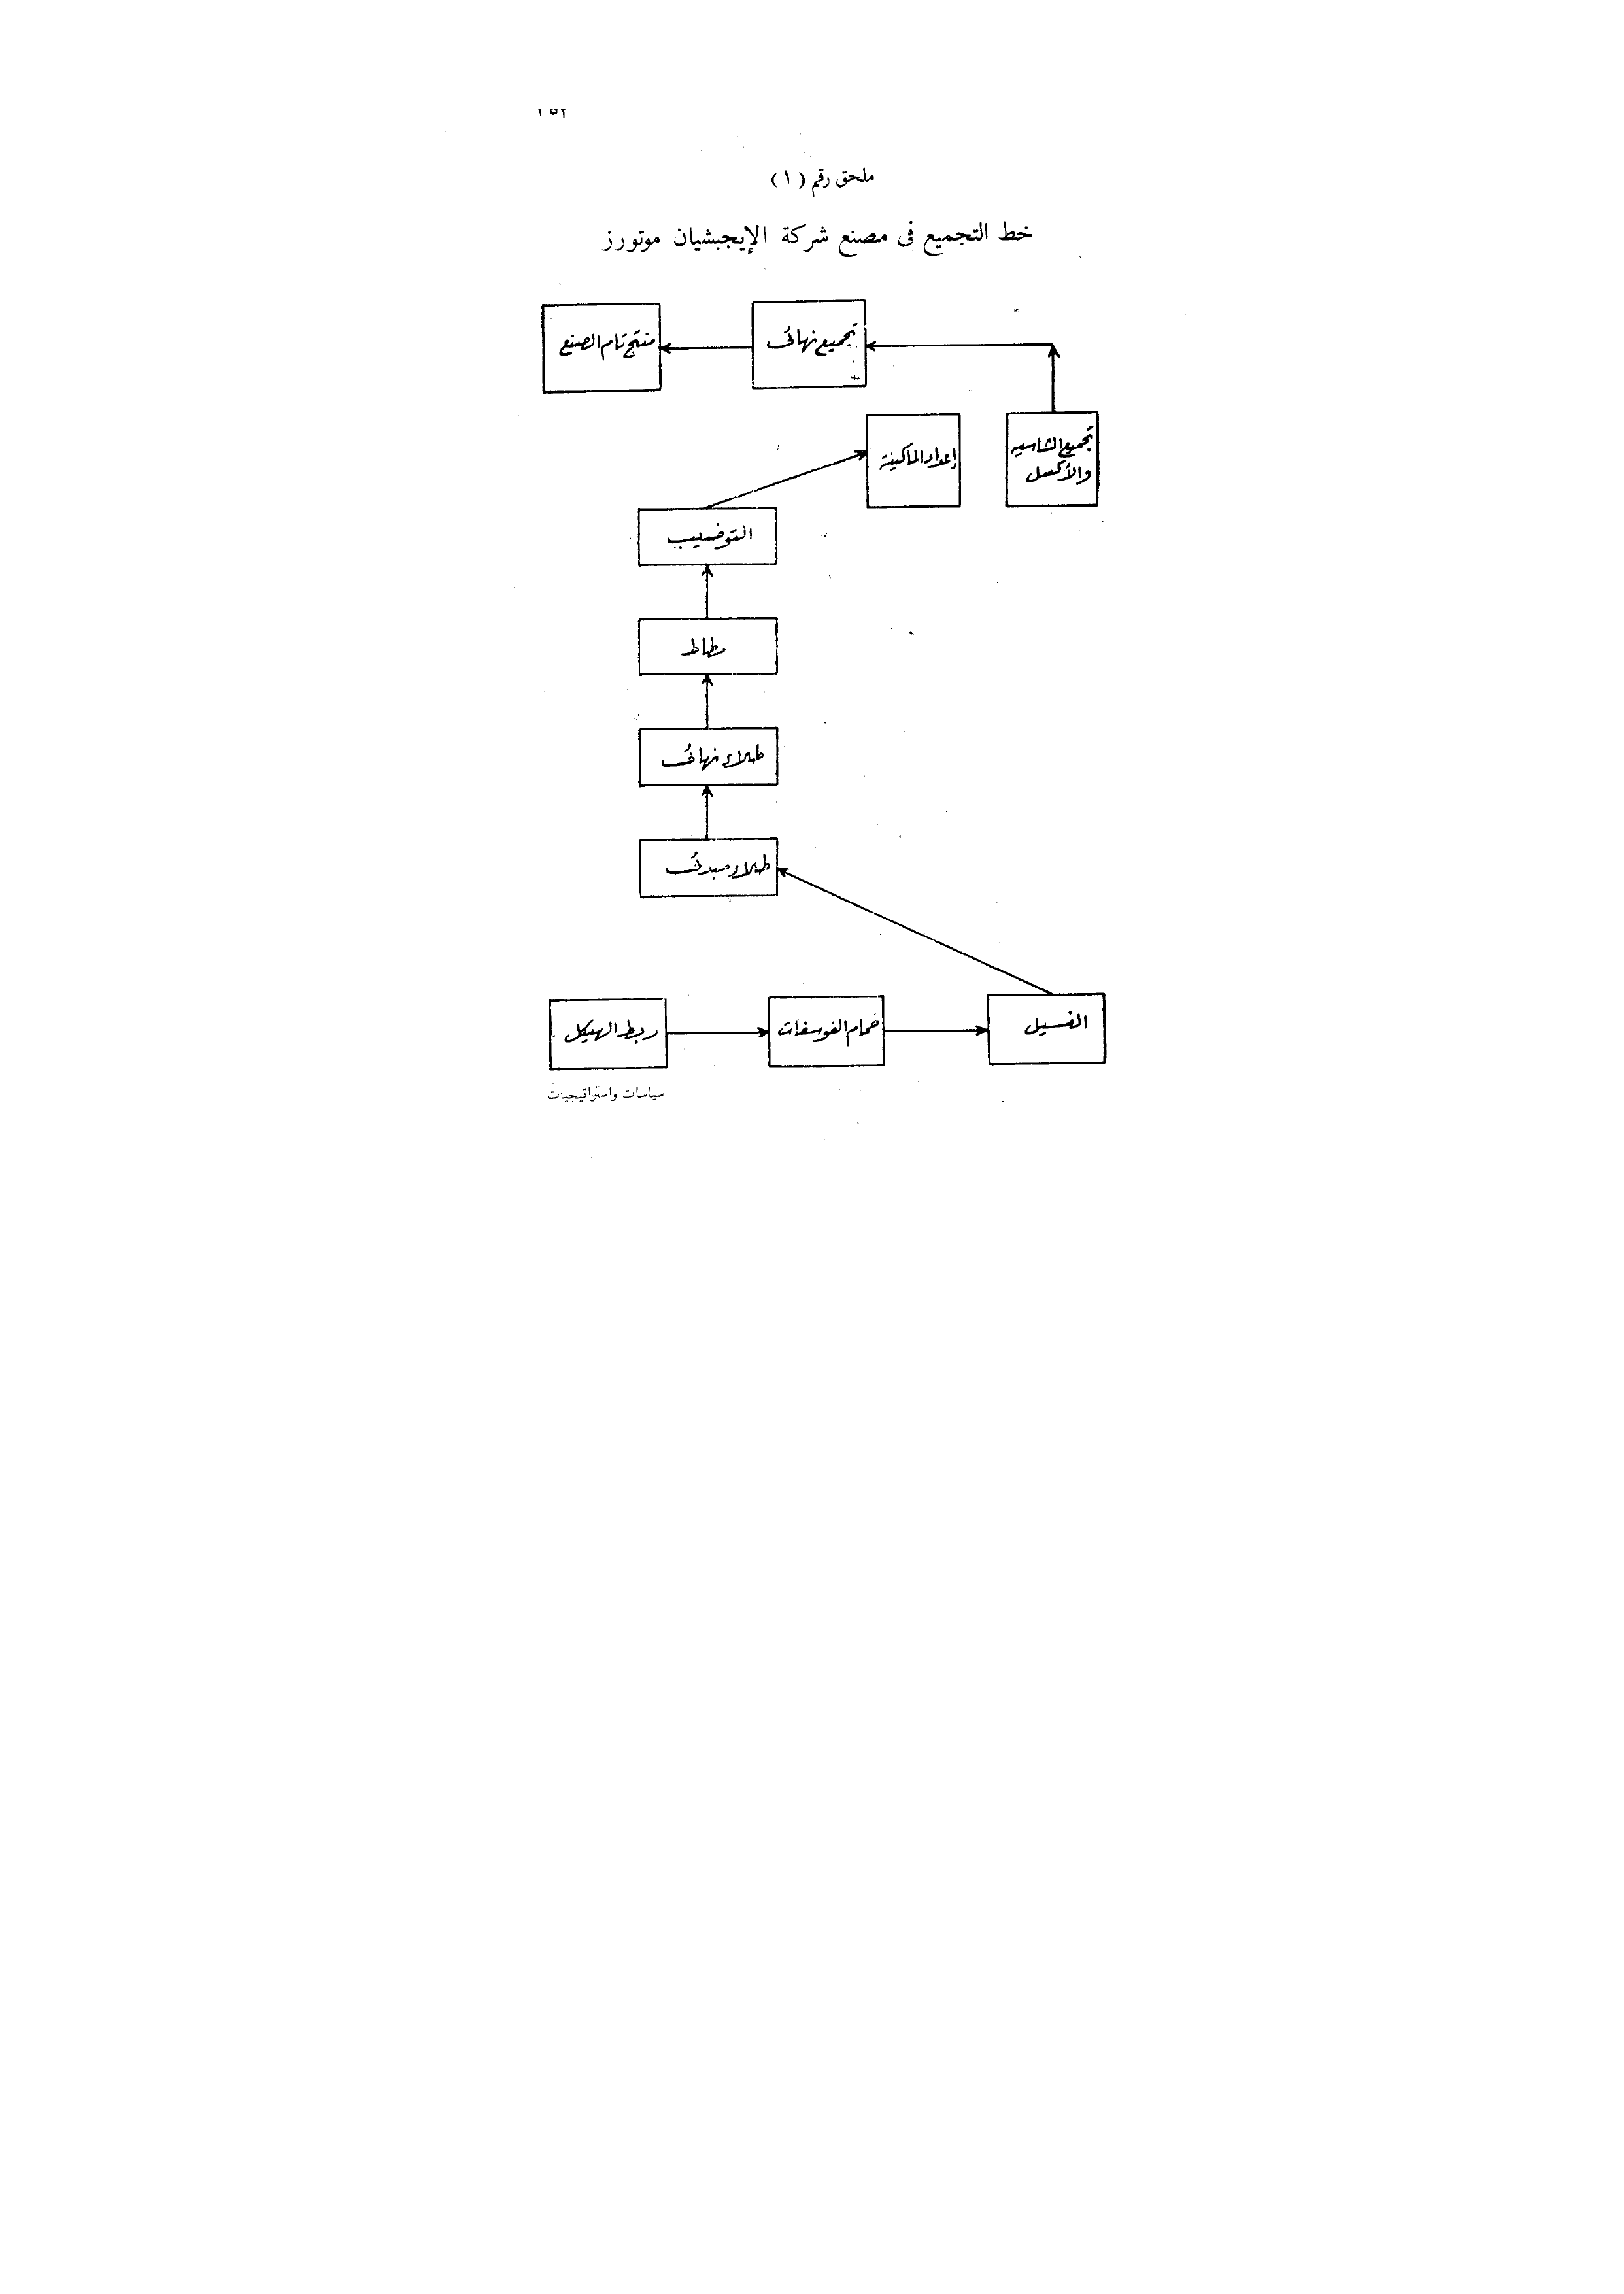 ١٥٢
ملحق رقم ( ١ )
خط التجميع فى مصنع شركة الإيجبشيان موتورز
تجميع نهائى
منتج تام الصنع
تجميع الشاسيه
والأكسل
إعداد الماكينة
التوضيب
مطاط
طلاء نهائى
طلاء مبدئى
الغسيل
حمام الفوسفات
ربط الهيكل
سياسات واستراتيجيات